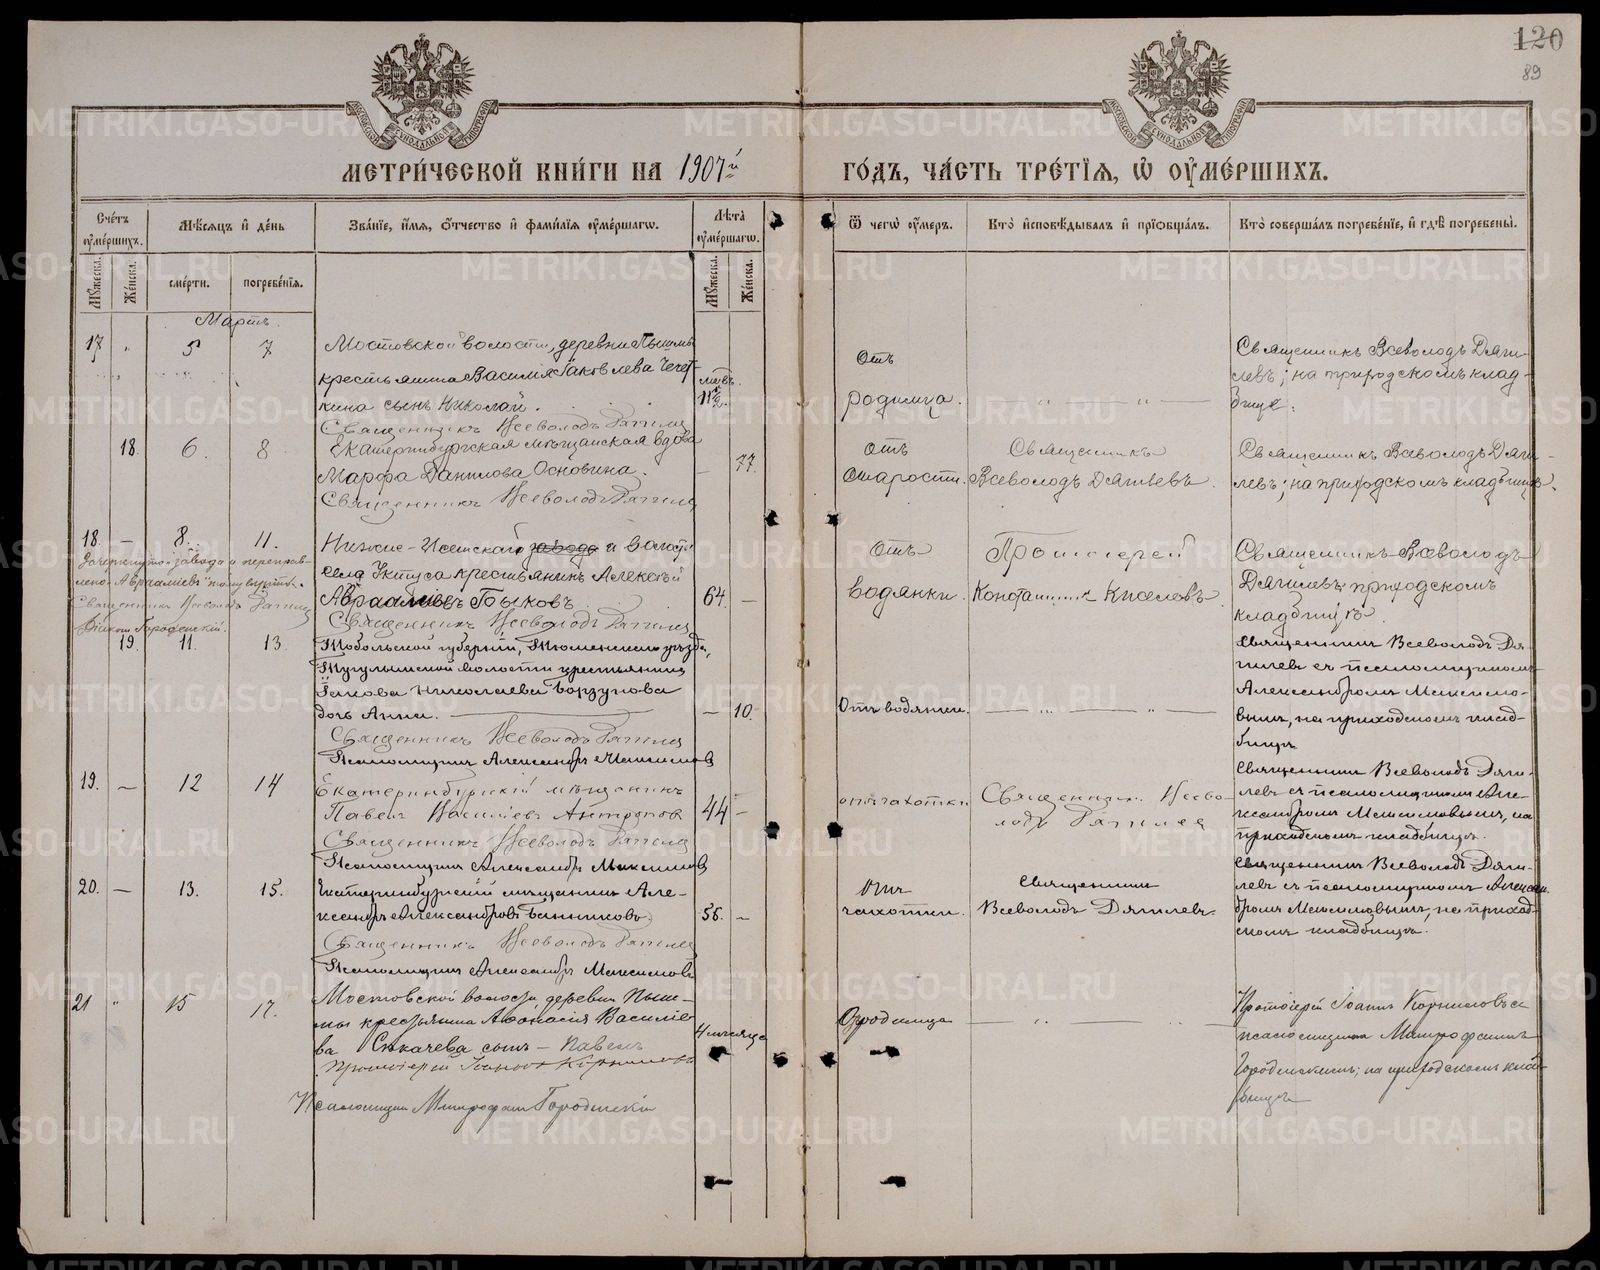 120
89
МЕТРИ́ЧЕСКОЙ КНИ́ГИ НА 1907й
ГО́ДЪ, ЧА́СТЬ ТРЕ́ТІЯ, Ѡ҆ ОУ҆МЕ́РШИХЪ.
Сче́тъ оу҆ме́ршихъ.
Мѣ́сяцъ и҆ де́нь
Зва́нїе, и҆́мя, ѻ҆́тчество и҆ фами́лїя оу҆ме́ршагѡ.
Лѣ́та оу҆ме́ршагѡ.
Ѿ чегѡ̀ оу҆́меръ.
Кто̀ и҆сповѣ́дывалъ и҆ прїѡбща́лъ.
Кто̀ соверша́лъ погребе́нїе, и҆ гдѣ̀ погребены̀.
Му́жеска.
Же́нска.
сме́рти.
погребе́нїя.
Му́жеска.
Же́нска.
Мартъ.
17 " 5 7
Мостовской волости, деревни Пышмы
крестьянина Василія Яковлева Чечет-
кина сынъ Николай.
Священникъ Всеволодъ Дягилевъ
Отъ
родимца.
Священникъ Всеволодъ Дяги-
левъ; на приходскомъ клад-
бищѣ.
18. 6. 8
Екатеринбургская мѣщанская вдова
Марфа Данилова Основина.
Священникъ Всеволодъ Дягилевъ
— 77.
отъ
старости.
Священникъ
Всеволодъ Дягилевъ.
Священникъ Всеволодъ Дяги-
левъ; на приходскомъ кладбищѣ.
18. — 8. 11.
Нижне-Исетскаго завода и волости
села Уктуса крестьянинъ Алексѣй
Авраамiевъ Быковъ
Священникъ Всеволодъ Дягилевъ
64. —
Зачеркнутое "завода и" переправ-
лено "Авраамiевъ" тому вѣрить.
Священникъ Всеволодъ Дягилевъ
Городенскій.
отъ
водянки.
Протоіерей
Константинъ Киселевъ
Священникъ Всеволодъ
Дягилевъ; приходскомъ
кладбищѣ.
19. 11. 13.
Тобольской губерніи, Тюменскаго уѣзда,
Тугулымской волости крестьянина
Іакова Николаева Борзунова
дочь Анна.
Священникъ Всеволодъ Дягилевъ
Псаломщикъ Александръ Максимовъ
— 10.
Отъ водянки.
Священникъ Всеволодъ Дя-
гилевъ съ псаломщикомъ
Александромъ Максимо-
вымъ, на приходскомъ клад-
бищѣ.
19. — 12 14
Екатеринбургскій мѣщанинъ
Павелъ Васильевъ Антроповъ
Священникъ Всеволодъ Дягилевъ
Псаломщикъ Александръ Максимовъ
44 —
отъ чахотки
Священникъ Всево-
лодъ Дягилевъ
Священникъ Всеволодъ Дяги-
левъ съ псаломщикомъ Але-
ксандромъ Максимовымъ, на
приходскомъ кладбищѣ.
20. — 13. 15.
Екатеринбургскій мѣщанинъ Але-
ксандръ Александровъ Банниковъ
Священникъ Всеволодъ Дягилевъ
Псаломщикъ Александръ Максимовъ
56. —
Отъ
чахотки.
Священникъ
Всеволодъ Дягилевъ.
Священникъ Всеволодъ Дяги-
левъ съ псаломщикомъ Алексан-
дромъ Максимовымъ, на приход-
скомъ кладбищѣ.
21 " 15 17.
Мостовской волости, деревни Пыш-
мы крестьянина Аѳанасія Василіе-
ва Сыкачева сынъ — Павелъ
Протоіерей Іоаннъ Корниловъ
Псаломщикъ Митрофанъ Городенскій
4 мѣсяца
От родимца
Протоіерей Іоаннъ Корниловъ съ
псаломщикомъ Митрофаномъ
Городенскимъ; на приходскомъ клад-
бищѣ
METRIKI.GASO-URAL.RU